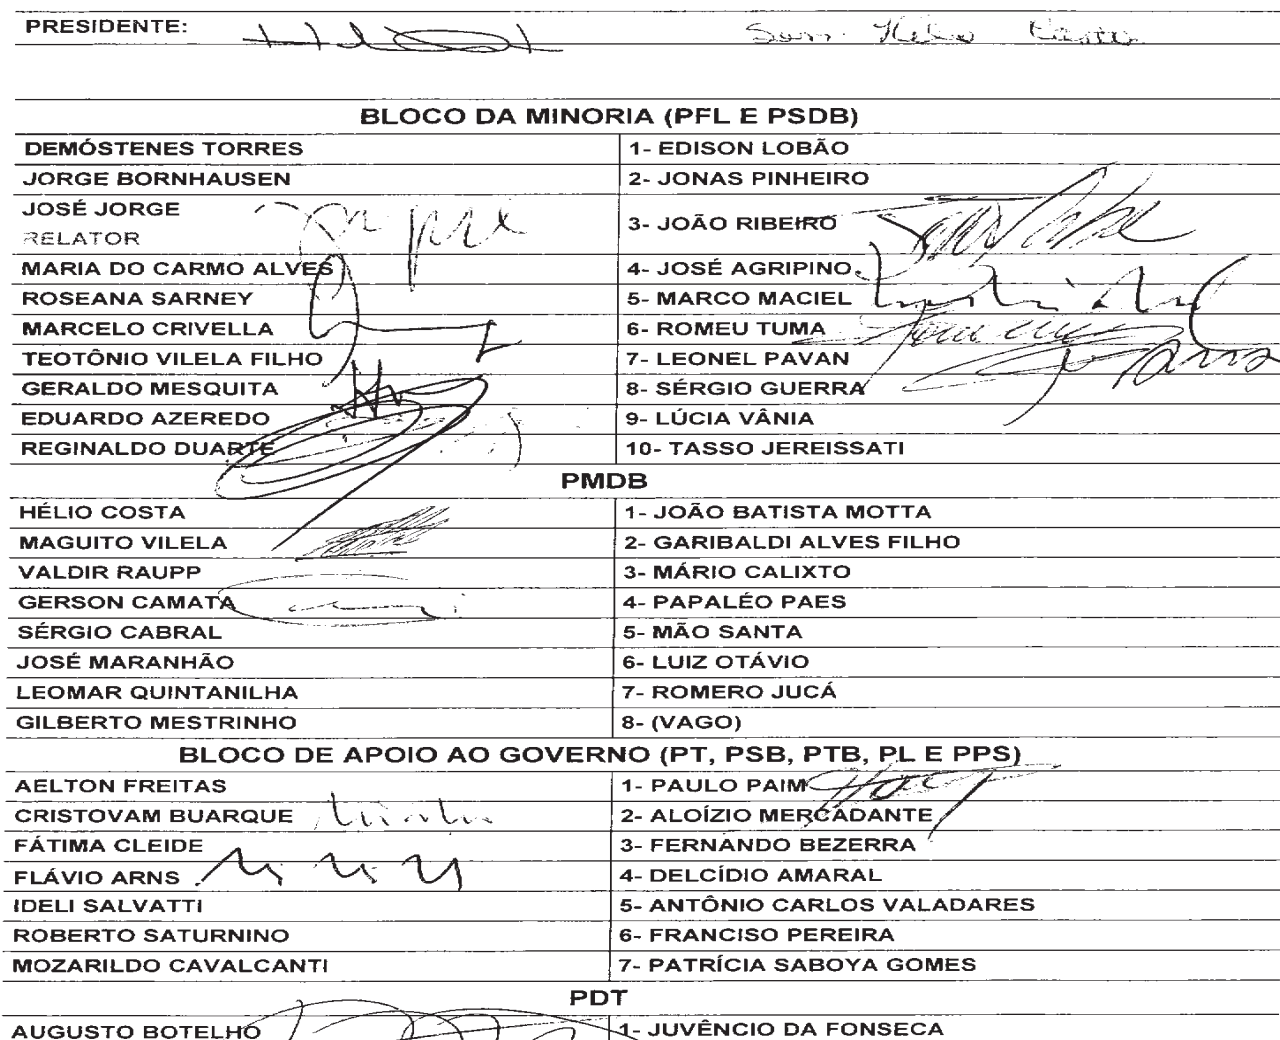 PRESIDENTE: Sen. Hélio Costa
BLOCO DA MINORIA (PFL E PSDB)
DEMÓSTENES TORRES 1- EDISON LOBÃO
JORGE BORNHAUSEN 2- JONAS PINHEIRO
JOSÉ JORGE
RELATOR 3- JOÃO RIBEIRO
MARIA DO CARMO ALVES 4- JOSÉ AGRIPINO
ROSEANA SARNEY 5- MARCO MACIEL
MARCELO CRIVELLA 6- ROMEU TUMA
TEOTÔNIO VILELA FILHO 7- LEONEL PAVAN
GERALDO MESQUITA 8- SÉRGIO GUERRA
EDUARDO AZEREDO 9- LÚCIA VÂNIA
REGINALDO DUARTE 10- TASSO JEREISSATI
PMDB
HÉLIO COSTA 1- JOÃO BATISTA MOTTA
MAGUITO VILELA 2- GARIBALDI ALVES FILHO
VALDIR RAUPP 3- MÁRIO CALIXTO
GERSON CAMATA 4- PAPALÉO PAES
SÉRGIO CABRAL 5- MÃO SANTA
JOSÉ MARANHÃO 6- LUIZ OTÁVIO
LEOMAR QUINTANILHA 7- ROMERO JUCÁ
GILBERTO MESTRINHO 8- (VAGO)
BLOCO DE APOIO AO GOVERNO (PT, PSB, PTB, PL E PPS)
AELTON FREITAS 1- PAULO PAIM
CRISTOVAM BUARQUE 2- ALOÍZIO MERCADANTE
FÁTIMA CLEIDE 3- FERNANDO BEZERRA
FLÁVIO ARNS 4- DELCÍDIO AMARAL
IDELI SALVATTI 5- ANTÔNIO CARLOS VALADARES
ROBERTO SATURNINO 6- FRANCISO PEREIRA
MOZARILDO CAVALCANTI 7- PATRÍCIA SABOYA GOMES
PDT
AUGUSTO BOTELHO 1- JUVÊNCIO DA FONSECA